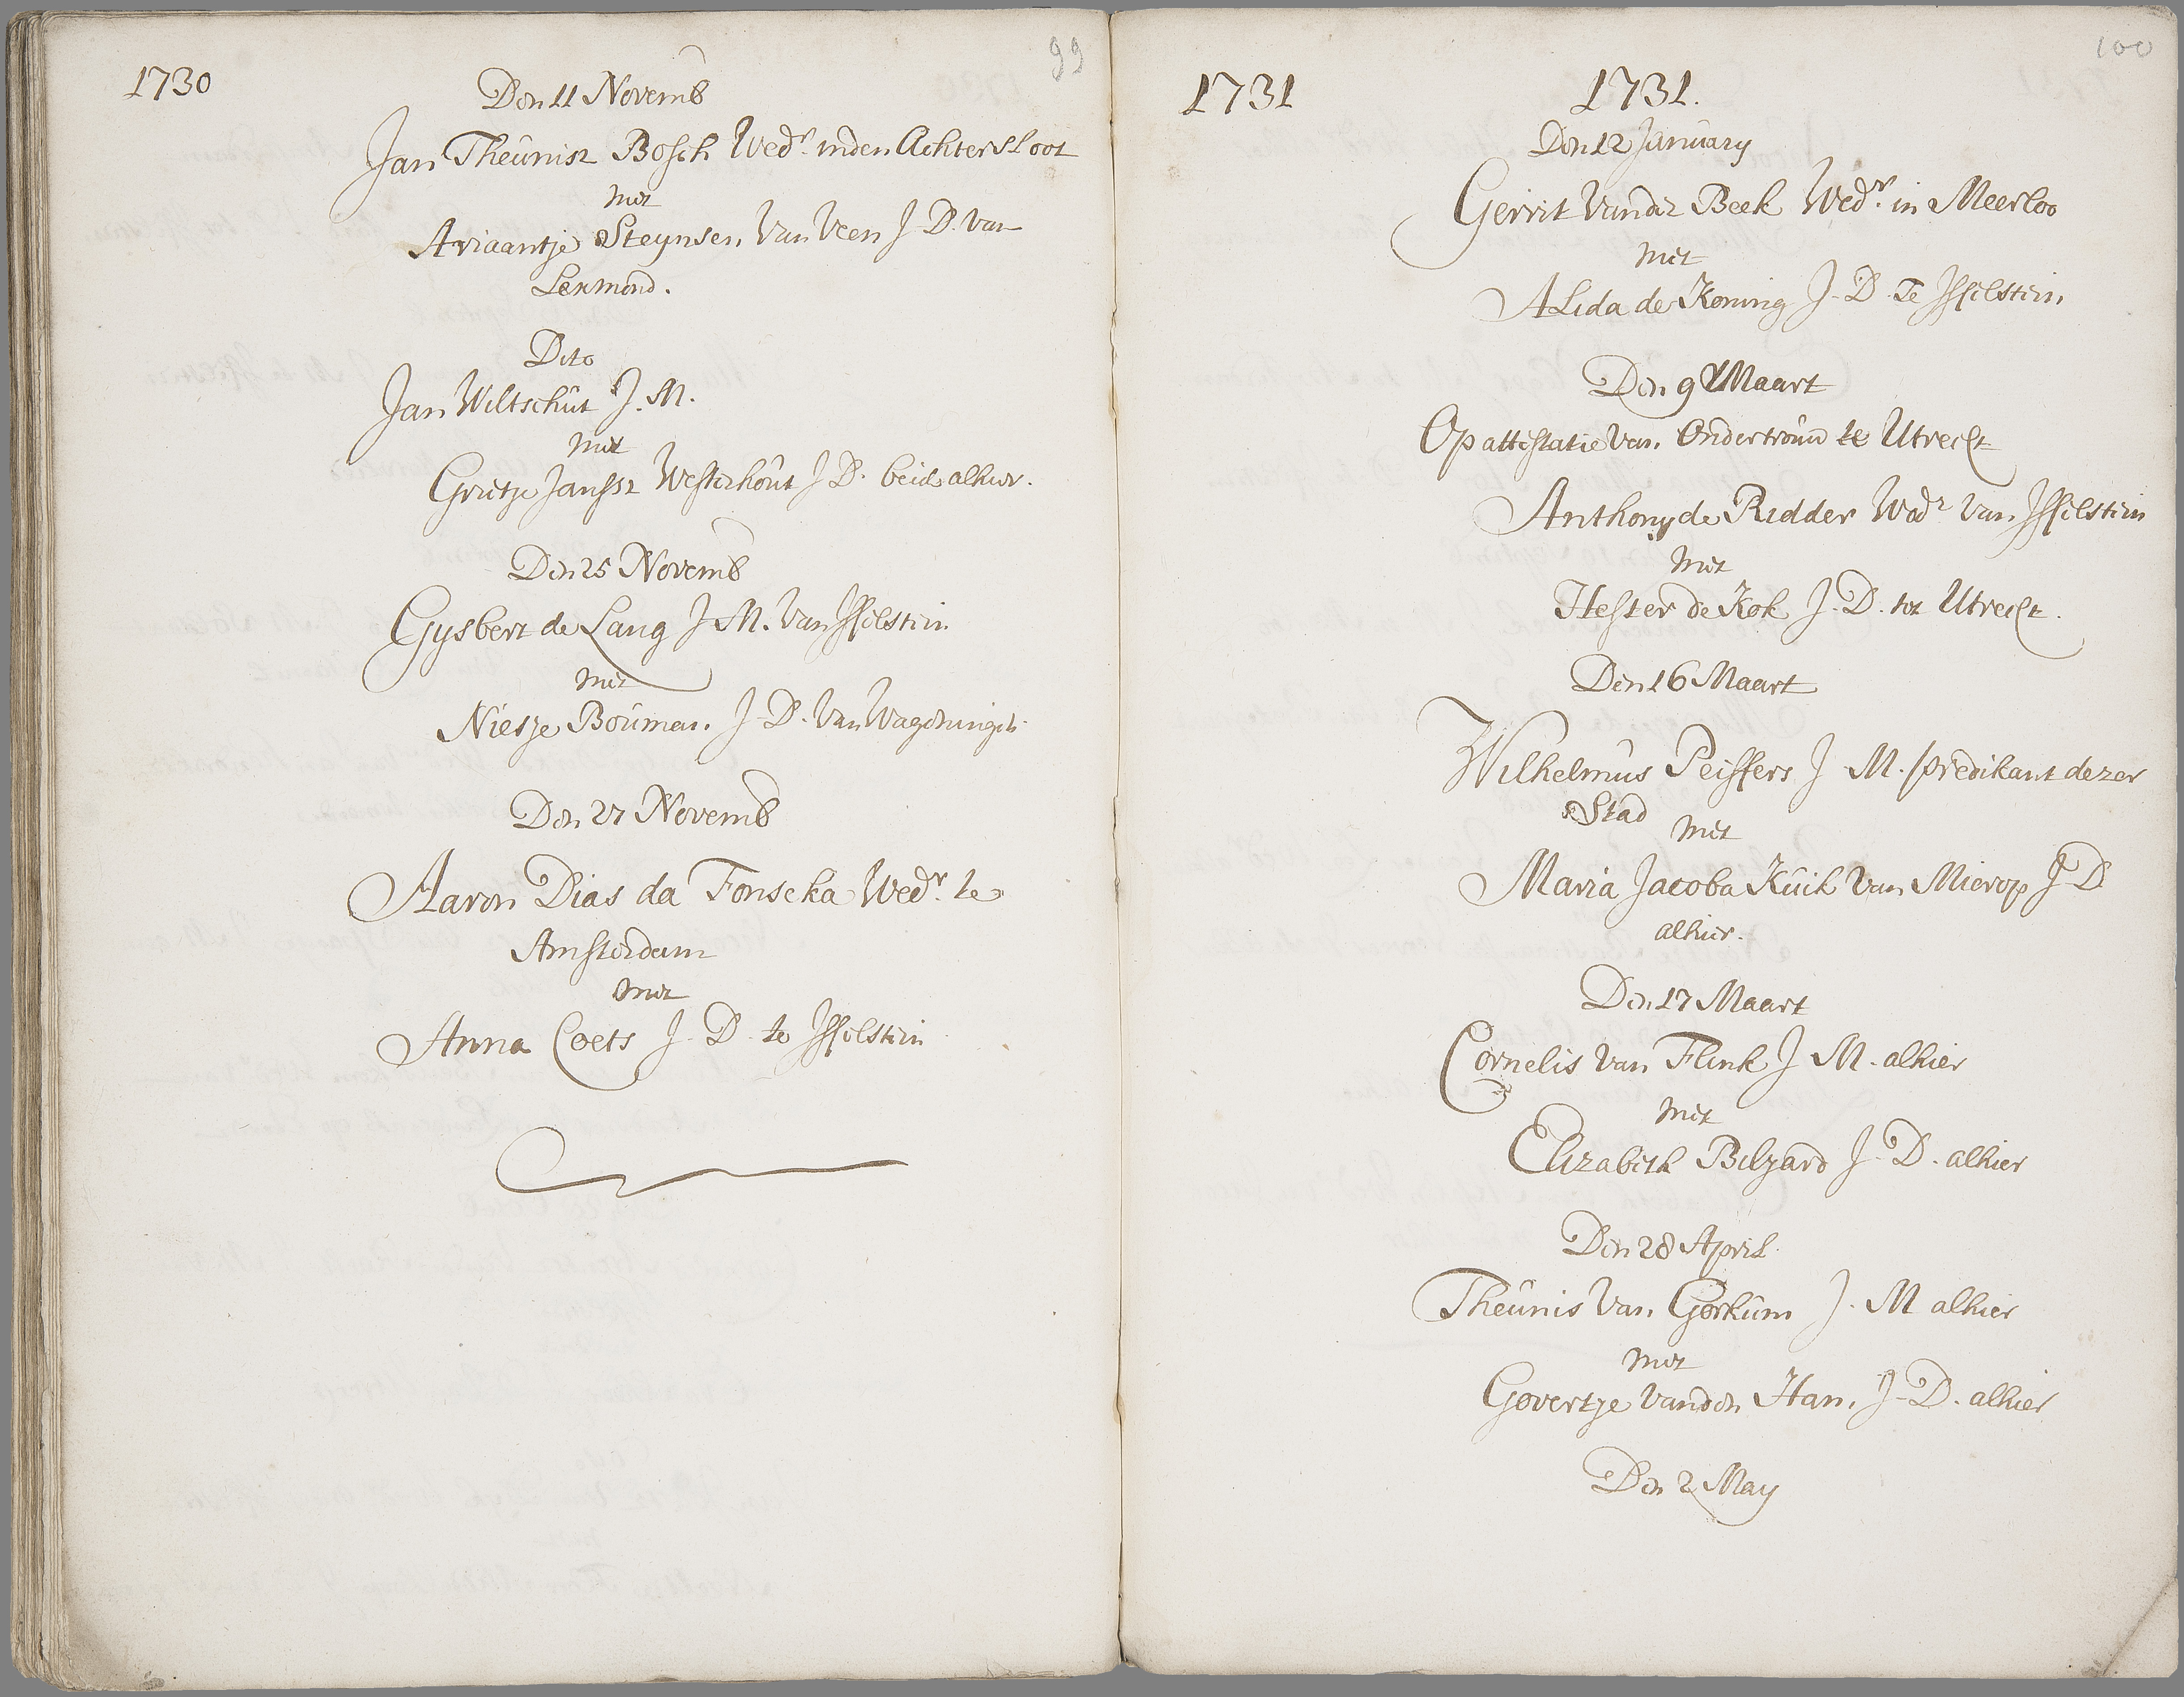 99
1730
Den 11 Novemb
Jan Theunisz Bosch Wedr. inden Achtersloot
met
Ariaantje Steynsen Van Veen J. D. Van
Lexmond.
Dito
Jan Wiltschut J. M.
met
Grietje Janssz Westerhout J D. beide alhier.
Den 25 Novemb
Gysbert de Lang J M. Van Isselstein
met
Niesje Bouman J. D. Van Wageningen
Den 27 Novemb
Aaron Dias da Fonseka Wedr. te
Amsterdam
met
Anna Coets J. D. te Isselstein
100
1731
1731.
Den 12 January
Gerrit Vander Beek Wedr. in Meerloo
met
Alida de Koning J. D. Te Isselstein
Den 9 Maart
Op attestatie Van Ondertrouw te Utrecht
Anthony de Ridder Wedr Van Isselstein
met
Hester de Kok J. D. tot Utrecht.
Den 16 Maart
Wilhelmus Peiffers J. M. predikant dezer
Stad met
Maria Jacoba Kuik Van Mierop J D
alhier.
Den 17 Maart
Cornelis Van Flink J M. alhier
met
Elizabeth Bilzard J. D. alhier
Den 28 April
Theunis Van Gorkum J. M alhier
met
Govertje Vanden Ham J. D. alhier
Den 2 May